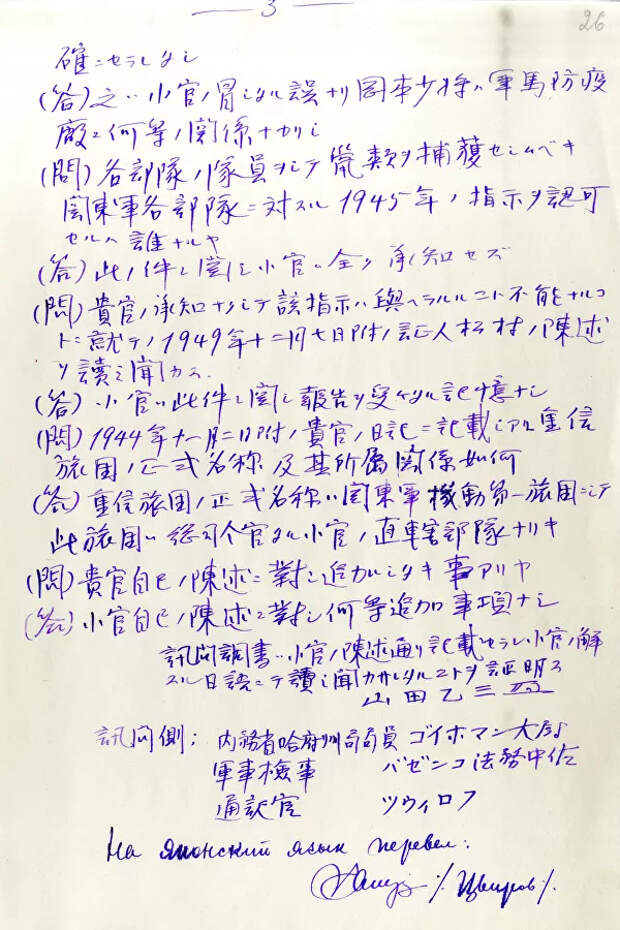 — 3 —
26
確ニセラレタシ
(答) 之ハ小官ノ冒シタル誤ナリ岡本少将ハ軍馬防疫
廠ニ何等ノ関係ナカリシ
(問) 各部隊ノ隊員ヲシテ齧類ヲ捕獲セシムベキ
関東軍各部隊ニ対スル1945年ノ指示ヲ認可
セルハ誰ナルヤ
(答) 此ノ件ニ関シ小官ハ全ク承知セズ
(問) 貴官ノ承知ナシニテ該指示ハ與ヘラルルコト不能ナルコ
トニ就テノ1949年十二月七日附ノ証人松村ノ陳述
ヲ讀ミ聞カス
(答) 小官ハ此件ニ関シ報告ヲ受ケタル記憶ナシ
(問) 1944年十一月二日附ノ貴官ノ日記ニ記載シアル重信
旅団ノ正式名称及其所属関係如何
(答) 重信旅団ノ正式名称ハ関東軍機動第一旅団ニシテ
此旅団ハ総司令官タル小官ノ直轄部隊ナリキ
(問) 貴官自己ノ陳述ニ對シ追加シタキ事アリヤ
(答) 小官自己ノ陳述ニ對シ何等追加事項ナシ
訊問調書ハ小官ノ陳述通リ記載セラレ小官ノ解
スル日語ニテ讀ミ聞カサレタルコトヲ証明ス
山田乙三
訊問側; 内務省哈府州司局員 ゴイホマン大尉
軍事檢事 バゼンコ法務中佐
通訳官 ツウィロフ
На японский язык перевел:
/Цвиров/.